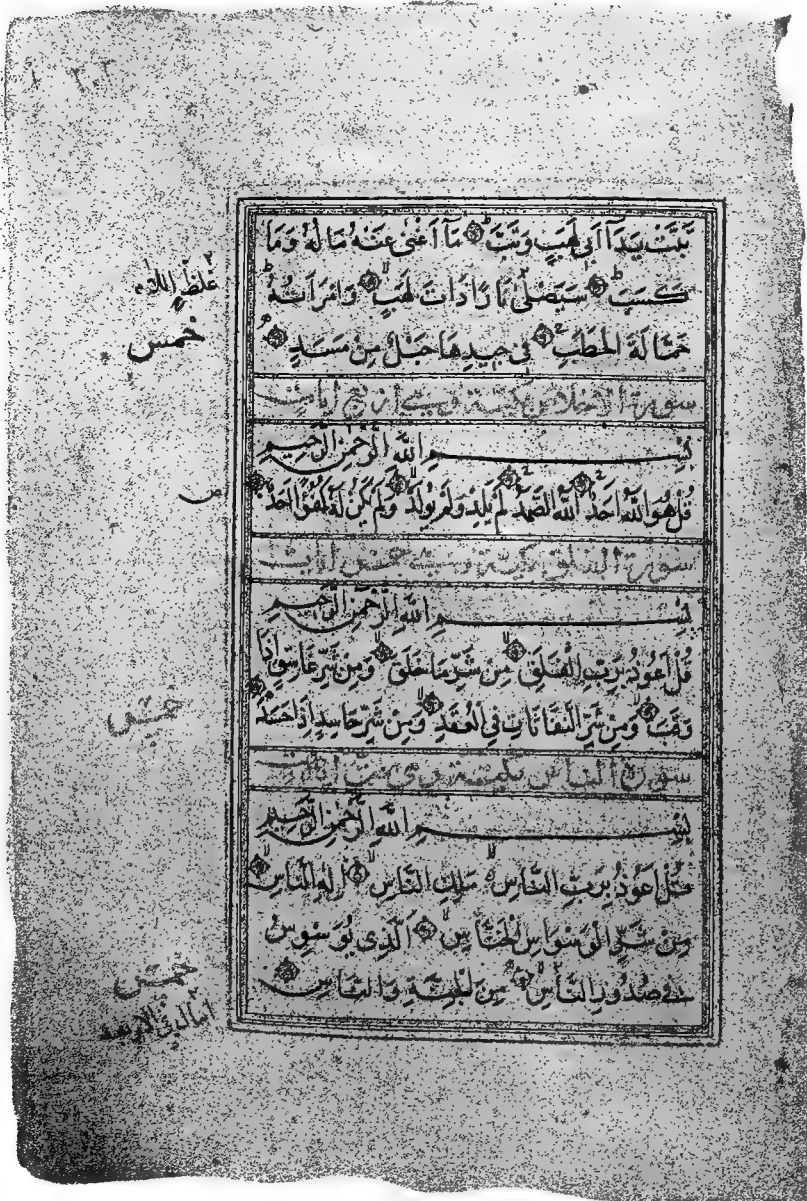 تَبَّتْ يَدَآ اَبِى لَهَبٍ وَتَبَّ مَآ اَغْنٰى عَنْهُ مَالُهُ وَمَا
كَسَبَ سَيَصْلٰى نَارًا ذَاتَ لَهَبٍ وَامْرَاَتُهُ
حَمَّالَةَ الْحَطَبِ فِى جِيدِهَا حَبْلٌ مِنْ مَسَدٍ
سورة الاخلاص مكية وهي اربع ايات
بِسْمِ اللّٰهِ الرَّحْمٰنِ الرَّحِيمِ
قُلْ هُوَ اللّٰهُ اَحَدٌ اَللّٰهُ الصَّمَدُ لَمْ يَلِدْ وَلَمْ يُولَدْ وَلَمْ يَكُنْ لَهُ كُفُوًا اَحَدٌ
سورة الفلق مكية وهي خمس ايات
بِسْمِ اللّٰهِ الرَّحْمٰنِ الرَّحِيمِ
قُلْ اَعُوذُ بِرَبِّ الْفَلَقِ مِنْ شَرِّ مَا خَلَقَ وَمِنْ شَرِّ غَاسِقٍ اِذَا
وَقَبَ وَمِنْ شَرِّ النَّفَّاثَاتِ فِى الْعُقَدِ وَمِنْ شَرِّ حَاسِدٍ اِذَا حَسَدَ
سورة الناس مكية وهي ست ايات
بِسْمِ اللّٰهِ الرَّحْمٰنِ الرَّحِيمِ
قُلْ اَعُوذُ بِرَبِّ النَّاسِ مَلِكِ النَّاسِ اِلٰهِ النَّاسِ
مِنْ شَرِّ الْوَسْوَاسِ الْخَنَّاسِ اَلَّذِى يُوَسْوِسُ
فِى صُدُورِ النَّاسِ مِنَ الْجِنَّةِ وَالنَّاسِ
خمس